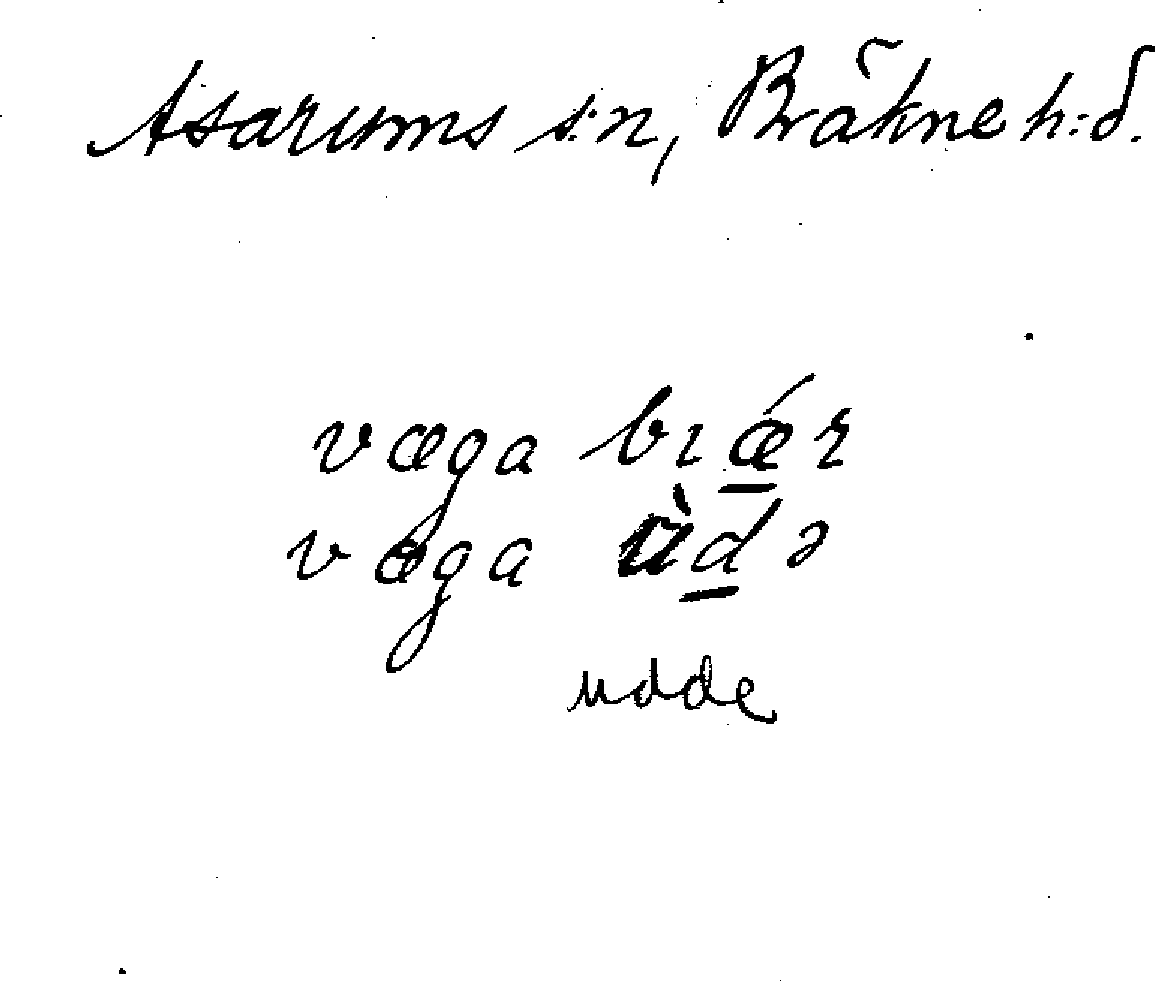 Asarums s:n, Bräkne h:d.
væga bɪǽ̲r
væga ùd̲ə
udde